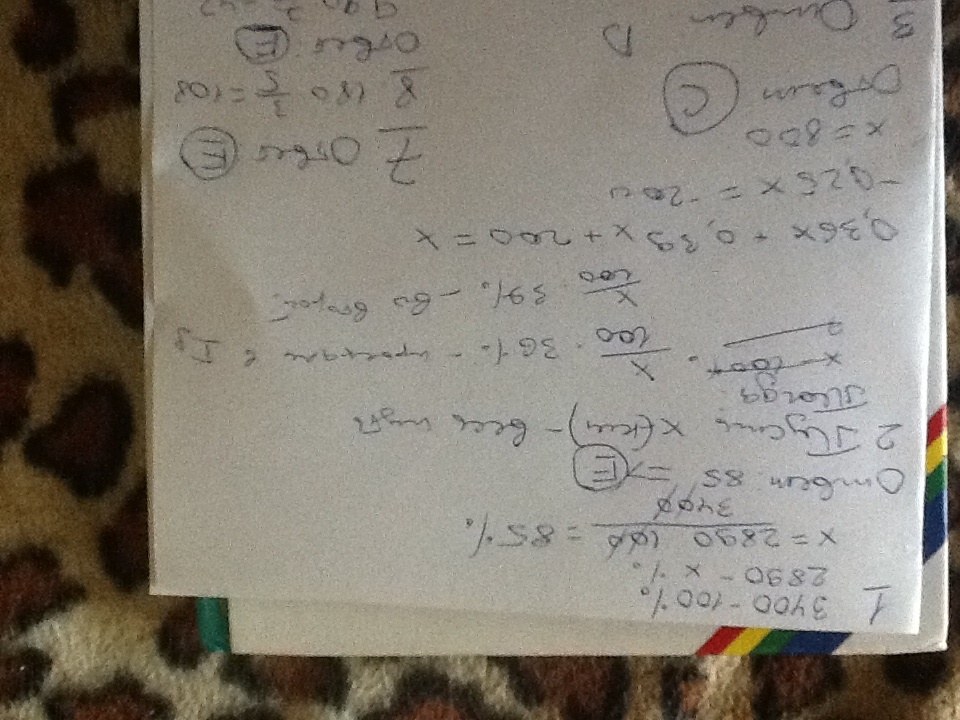 1 3400 - 100%
2890 - x %
x = 2890 100 / 3400 = 85%
Ответ 85 => E
2 Пусть x(км) - весь путь
Тогда
x/100 · 36% - проехали в I
x/100 · 39% - во второй
0,36x + 0,39x + 200 = x
-0,25x = -200
x = 800
Ответ C
3 Ответ D
7 Ответ E
8 180 3/5 = 108
Ответ: E